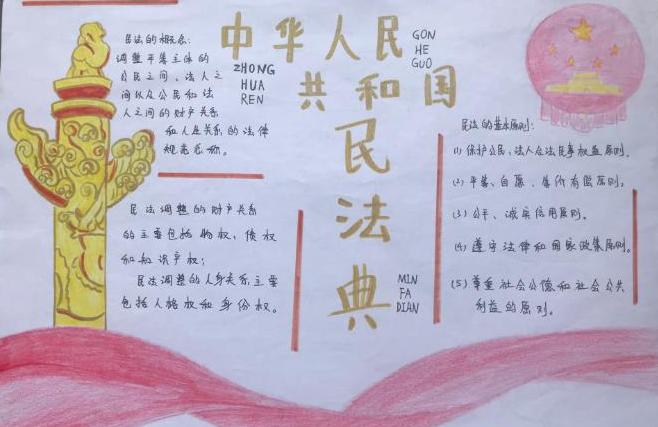 中华人民
共和国
民法典
ZHONG
HUA
REN
GON
HE
GUO
MIN
FA
DIAN
民法的概念:
调整平等主体的
公民之间、法人之
间以及公民和法
人之间的财产关系
和人身关系的法律
规范总称。
民法调整的财产关系
的主要包括物权、债权
和知识产权;
民法调整的人身关系主要
包括人格权和身份权。
民法的基本原则:
(1) 保护公民、法人合法民事权益原则。
(2) 平等、自愿、等价有偿原则。
(3) 公平、诚实信用原则。
(4) 遵守法律和国家政策原则。
(5) 尊重社会公德和社会公共
利益的原则。